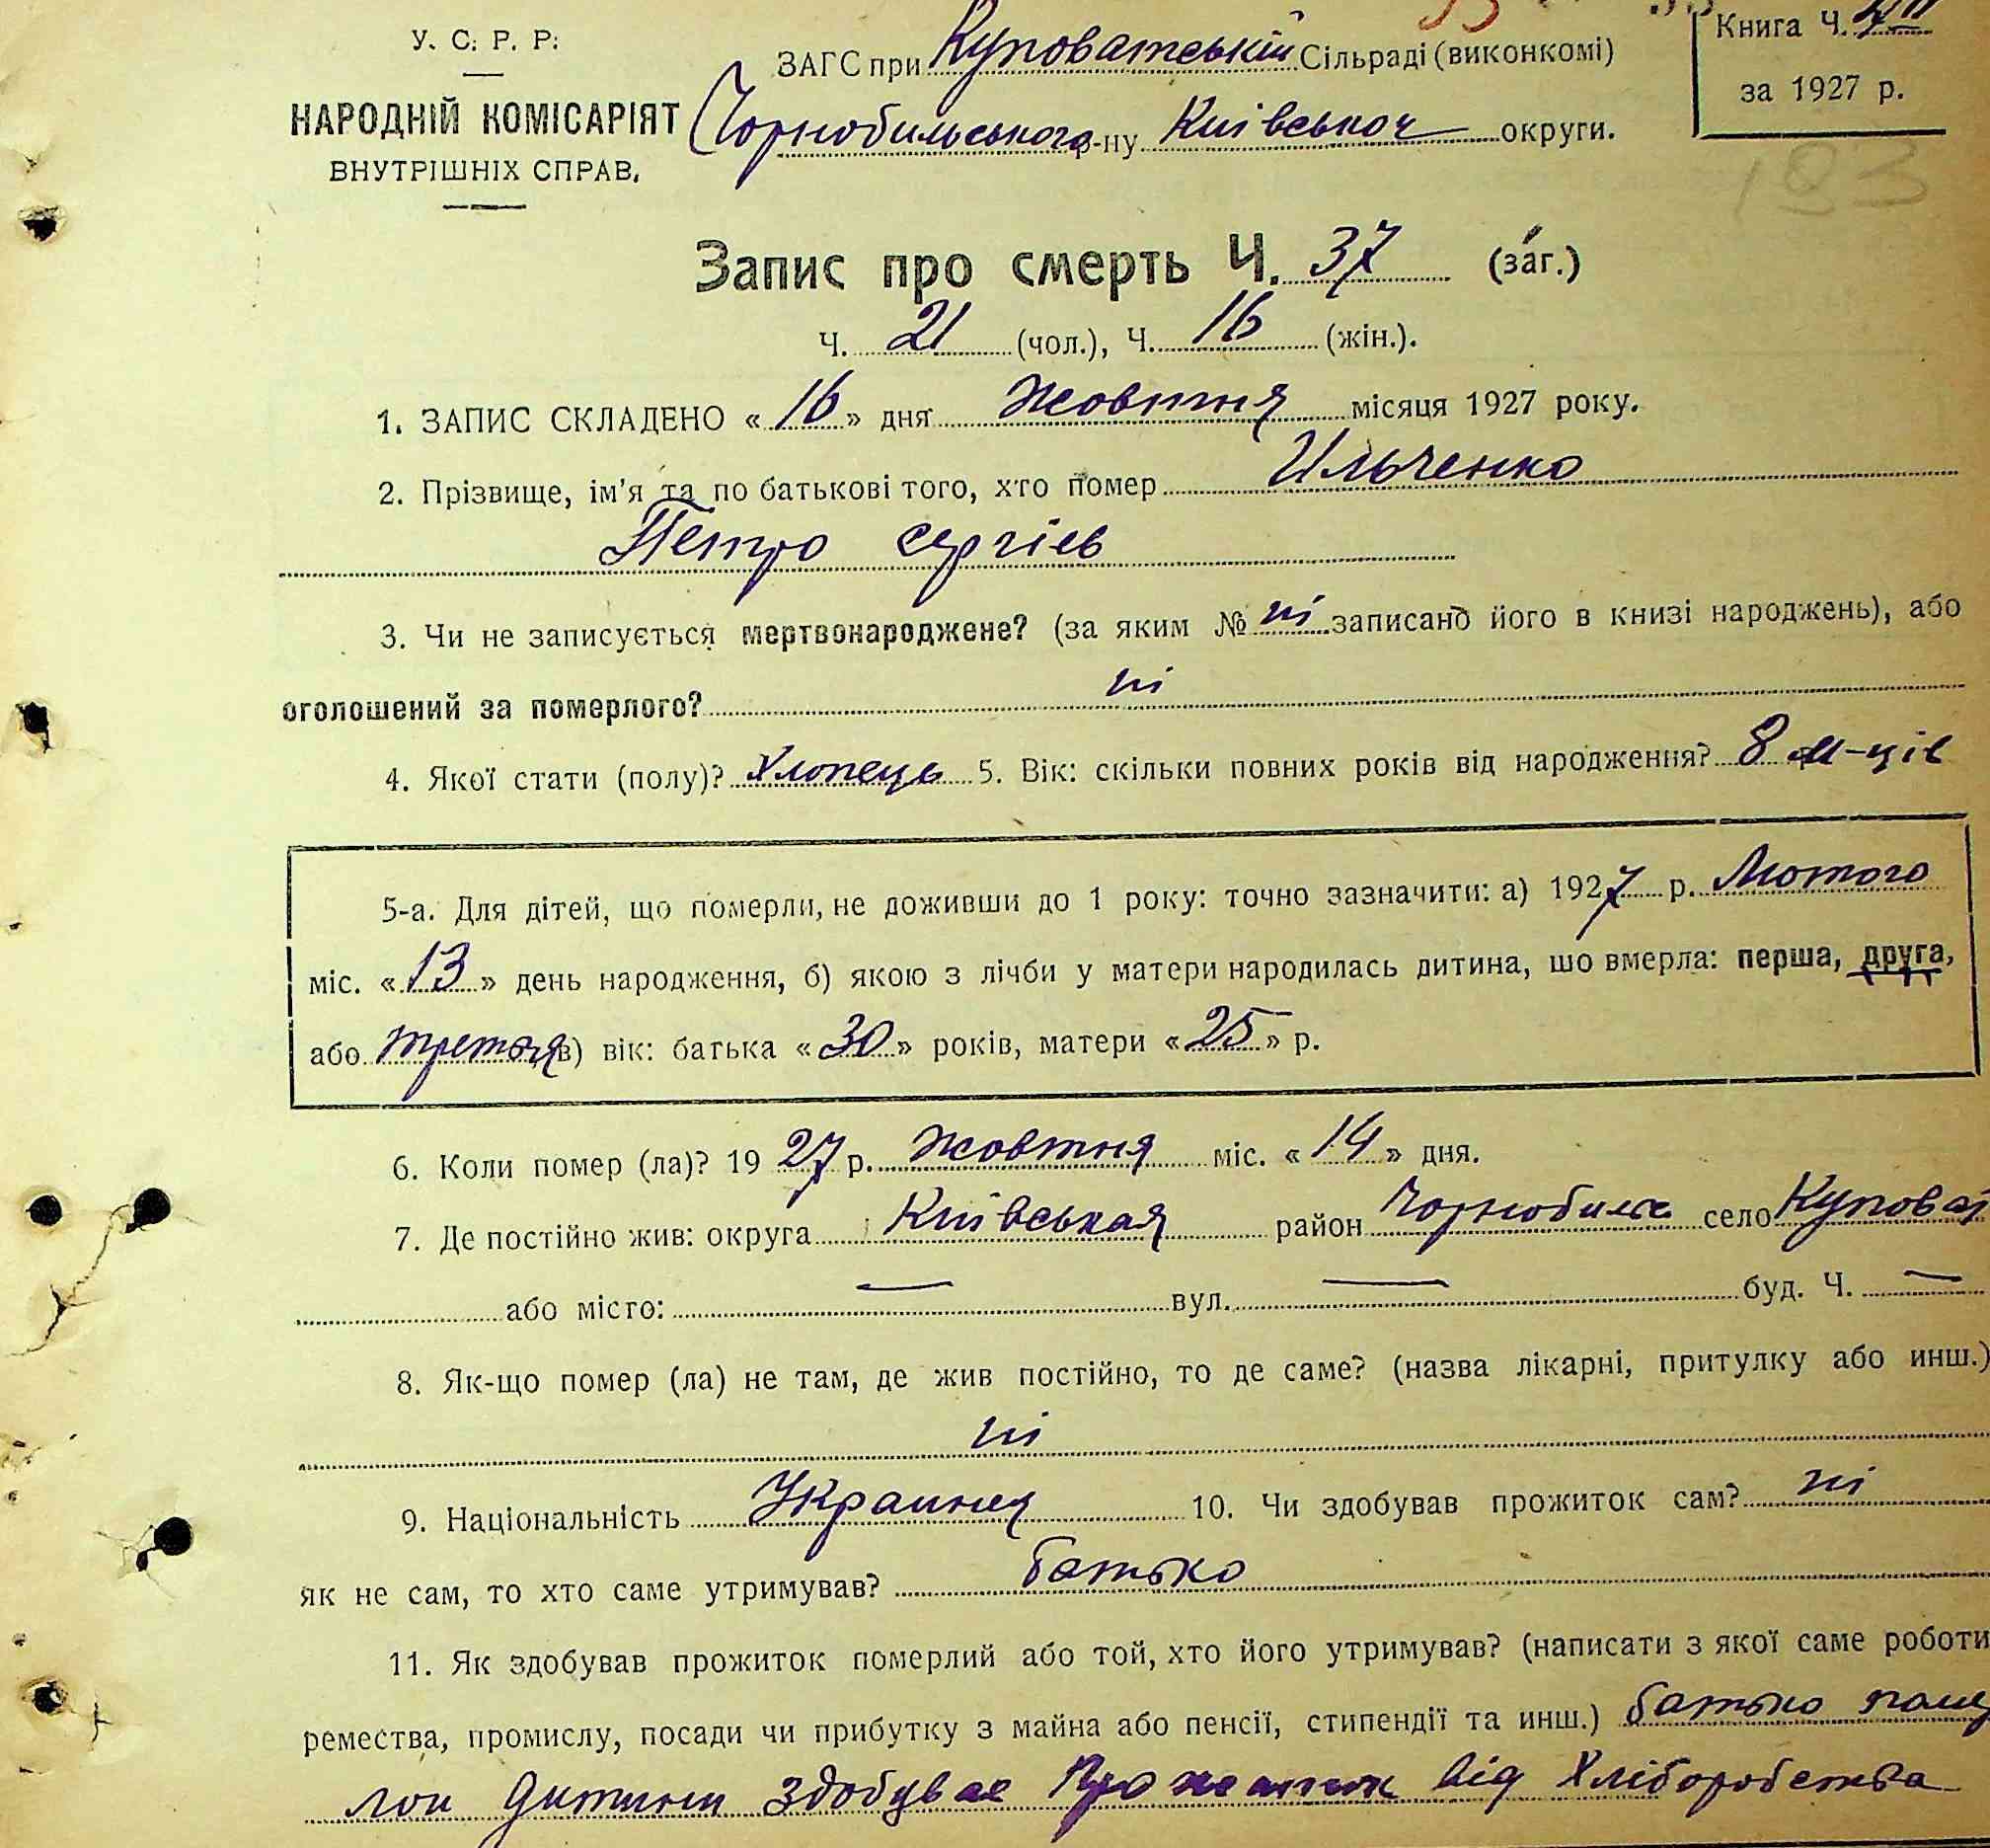 У. С. Р. Р.
НАРОДНІЙ КОМІСАРІЯТ
ВНУТРІШНІХ СПРАВ.
ЗАГС при Куповатській Сільраді (виконкомі)
Чорнобильського р-ну Київської округи.
Книга Ч.
за 1927 р.
183
Запис про смерть Ч. 37 (заг.)
Ч. 21 (чол.), Ч. 16 (жін.).
1. ЗАПИС СКЛАДЕНО «16» дня Жовтня місяця 1927 року.
2. Прізвище, ім'я та по батькові того, хто помер Ильченко
Петро Сергіев
3. Чи не записується мертвонароджене? (за яким № ні записано його в книзі народжень), або
оголошений за померлого? ні
4. Якої стати (полу)? Хлопець 5. Вік: скільки повних років від народження? 8 м-ців
5-а. Для дітей, що померли, не доживши до 1 року: точно зазначити: а) 1927 р. Лютого
міс. «13» день народження, б) якою з лічби у матери народилась дитина, шо вмерла: перша, друга,
або третя в) вік: батька «30» років, матери «25» р.
6. Коли помер (ла)? 1927 р. Жовтня міс. «14» дня.
7. Де постійно жив: округа Київськая район Чорнобиль село Куповат
або місто: — вул. — буд. Ч. —
8. Як-що помер (ла) не там, де жив постійно, то де саме? (назва лікарні, притулку або инш.)
ні
9. Національність 10. Чи здобував прожиток сам? ні
як не сам, то хто саме утримував? батько
11. Як здобував прожиток померлий або той, хто його утримував? (написати з якої саме роботи
ремества, промислу, посади чи прибутку з майна або пенсії, стипендії та инш.) батько
дитини здобував Прожиток від Хліборобства